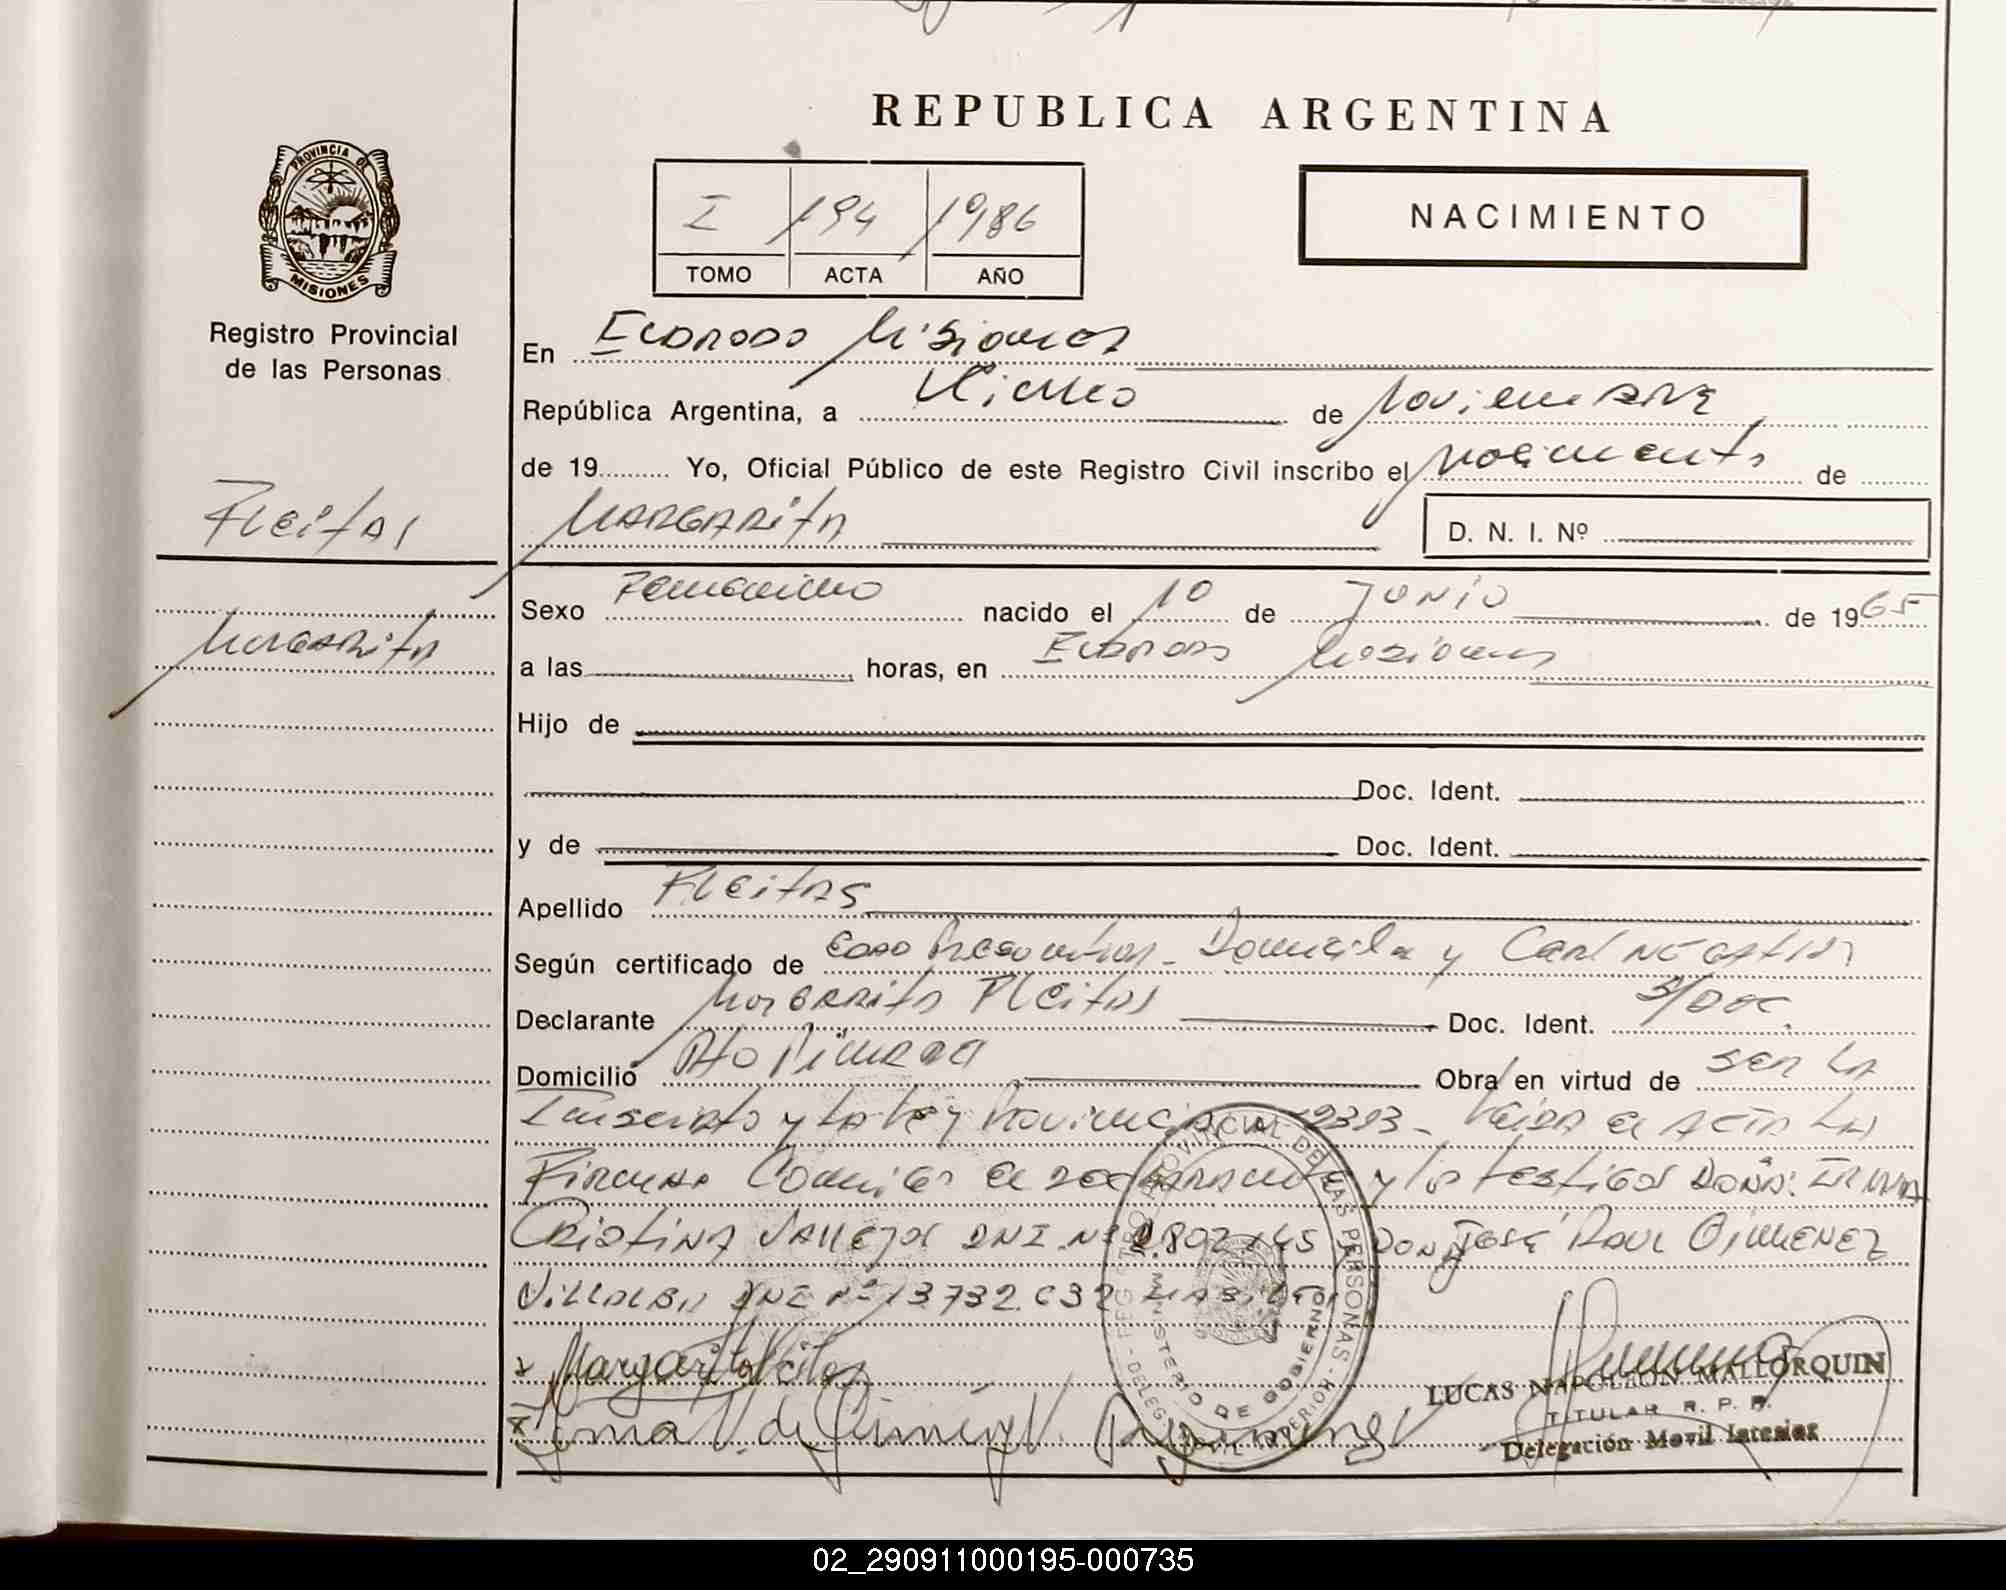 REPUBLICA ARGENTINA
PROVINCIA DE
MISIONES
Registro Provincial
de las Personas
I / 194 / 1986
TOMO ACTA AÑO
NACIMIENTO
En Eldorado Misiones
República Argentina, a Cinco de Noviembre
de 19 Yo, Oficial Público de este Registro Civil inscribo el nacimiento de
Fleitas
MARGARITA D. N. I. Nº
Sexo Femenino nacido el 10 de JUNIO de 1965
Margarita
a las horas, en Eldorado Misiones
Hijo de
Doc. Ident.
y de Doc. Ident.
Apellido Fleitas
Según certificado de Domicilio y Cert NEGATIVO
Declarante Margarita Fleitas Doc. Ident. S/Doc.
Domicilio Pto Obra en virtud de ser la
Inscripto y la ley Provincial 2393 - leida el ACTA la
Firman Conmigo el declarante y los testigos DOÑA: IRMA
CRISTINA VALLEJOS DNI Nº .802.145 y DON JOSÉ RAUL GIMENEZ
VILLALBA DNI Nº 13.732.632
x Margarita Fleitas
x Irma V. de Giménez
REGISTRO PROVINCIAL DE LAS PERSONAS
MINISTERIO DE GOBIERNO
LUCAS NAPOLEON MALLORQUIN
TITULAR R. P. P.
Delegación Movil Interior
02_290911000195-000735